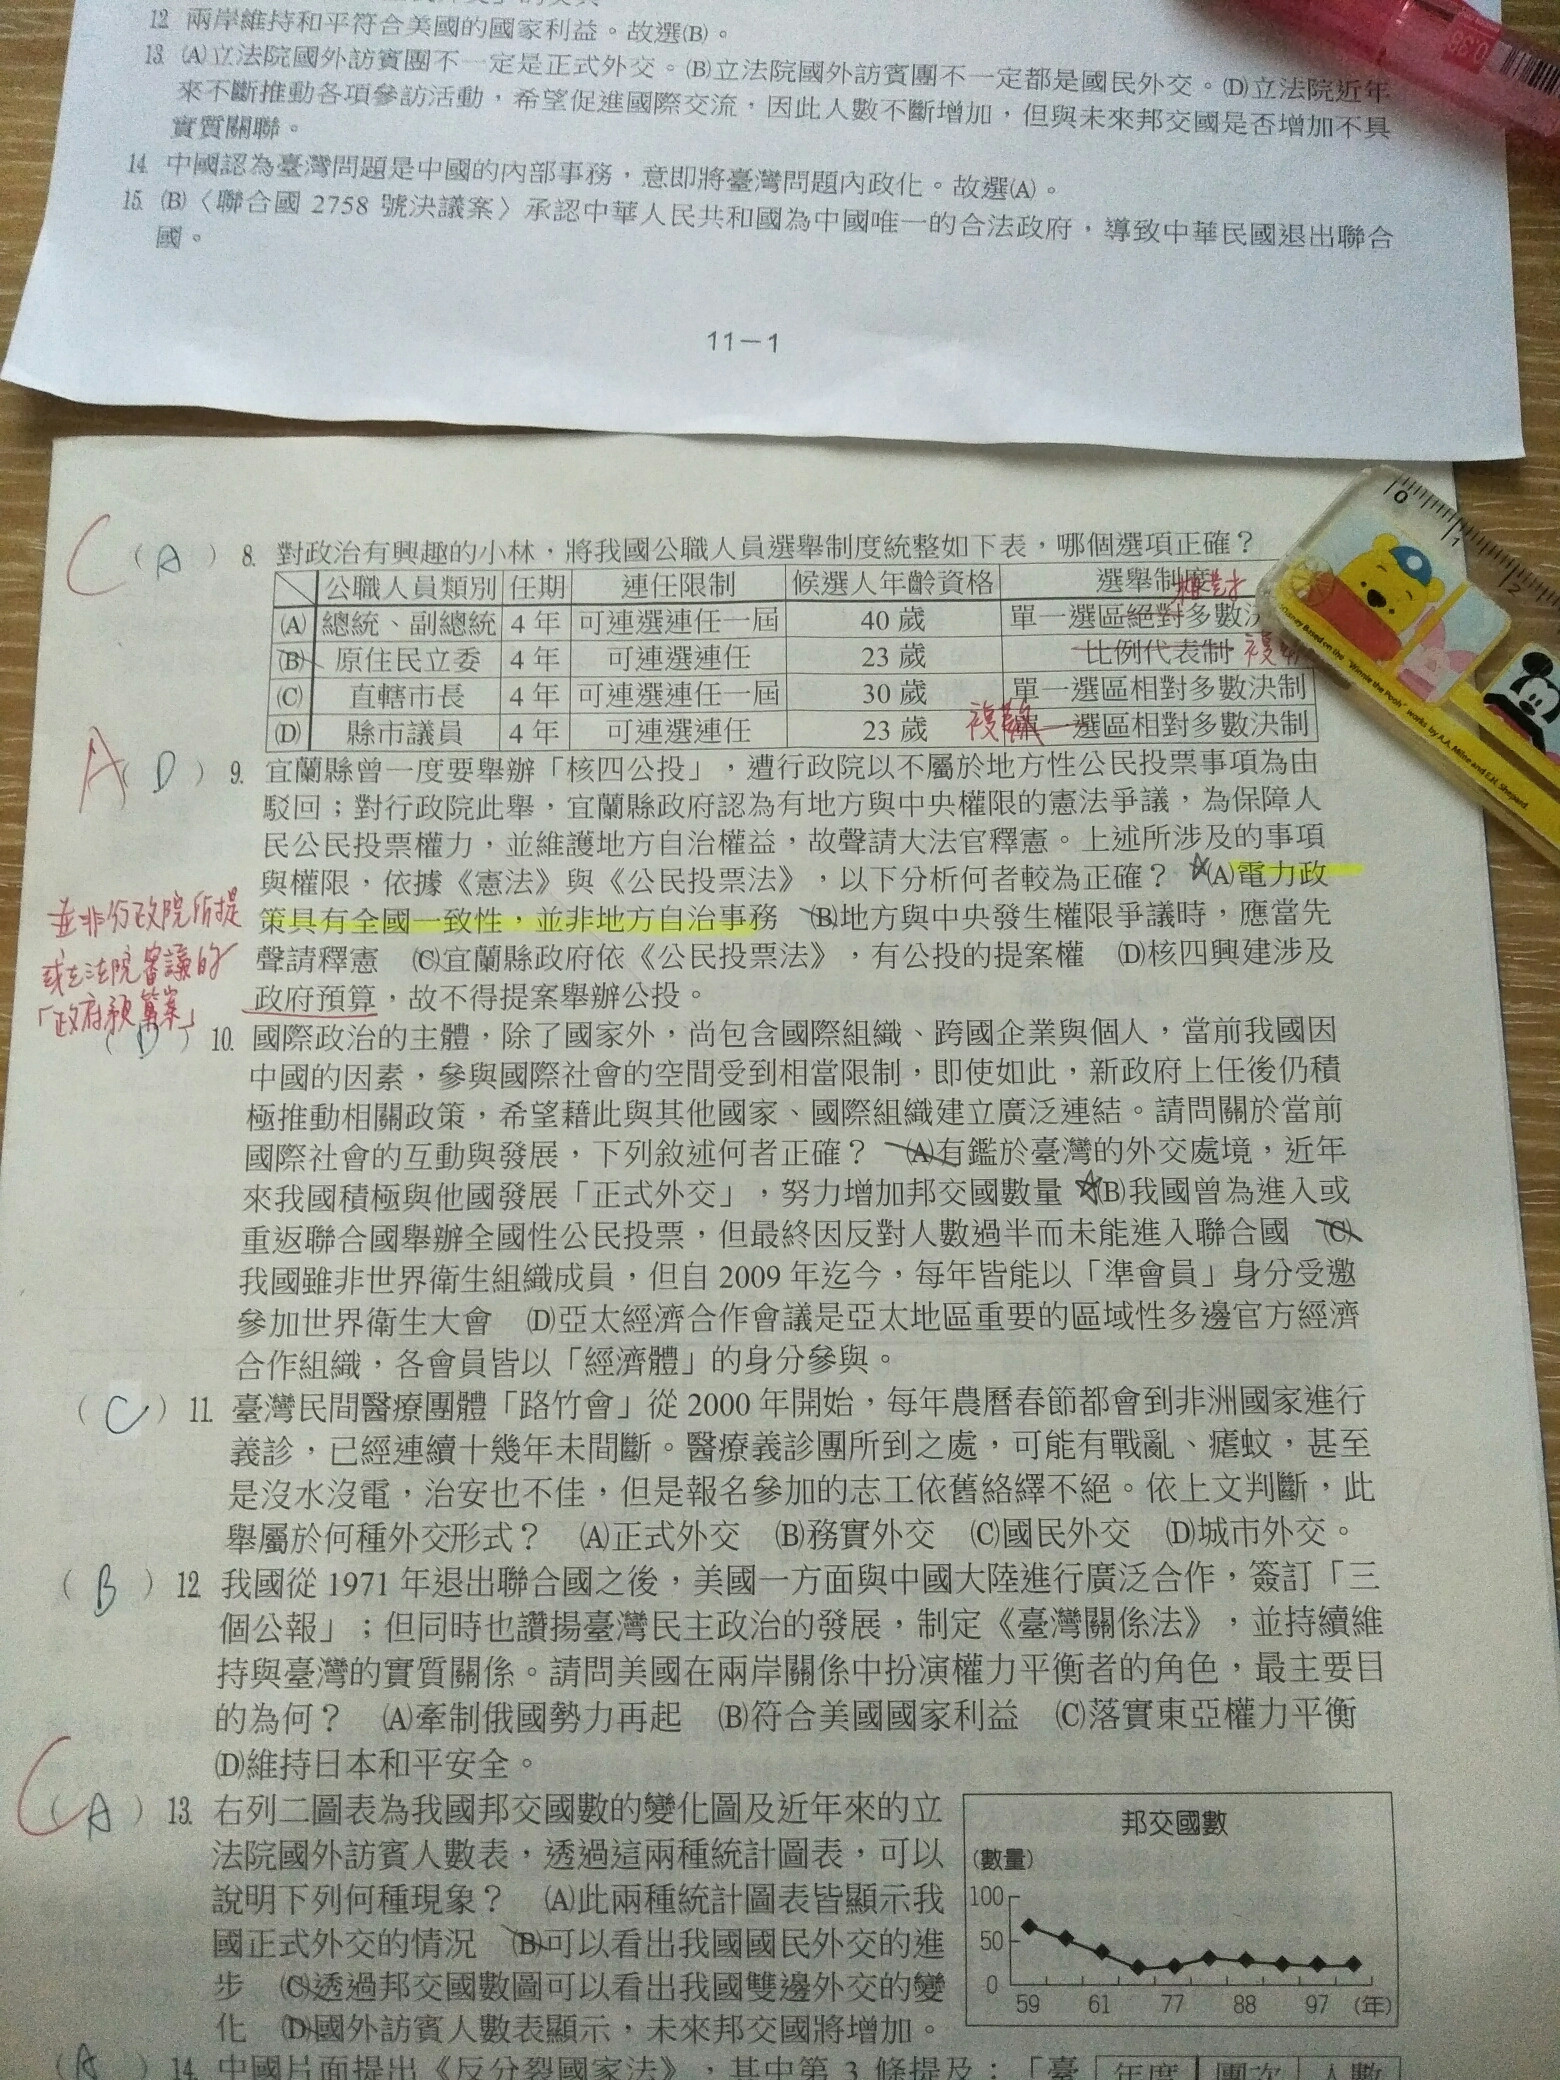 12. 兩岸維持和平符合美國的國家利益。故選(B)。
13. (A)立法院國外訪賓團不一定是正式外交。(B)立法院國外訪賓團不一定都是國民外交。(D)立法院近年
來不斷推動各項參訪活動，希望促進國際交流，因此人數不斷增加，但與未來邦交國是否增加不具
實質關聯。
14. 中國認為臺灣問題是中國的內部事務，意即將臺灣問題內政化。故選(A)。
15. (B)〈聯合國 2758 號決議案〉承認中華人民共和國為中國唯一的合法政府，導致中華民國退出聯合
國。
11－1
C (A) 8. 對政治有興趣的小林，將我國公職人員選舉制度統整如下表，哪個選項正確？
公職人員類別 任期 連任限制 候選人年齡資格 選舉制度
相對
(A) 總統、副總統 4 年 可連選連任一屆 40 歲 單一選區絕對多數決
(B) 原住民立委 4 年 可連選連任 23 歲 比例代表制
(C) 直轄市長 4 年 可連選連任一屆 30 歲 單一選區相對多數決制
(D) 縣市議員 4 年 可連選連任 23 歲 複數 單一選區相對多數決制
A (D) 9. 宜蘭縣曾一度要舉辦「核四公投」，遭行政院以不屬於地方性公民投票事項為由
駁回；對行政院此舉，宜蘭縣政府認為有地方與中央權限的憲法爭議，為保障人
民公民投票權力，並維護地方自治權益，故聲請大法官釋憲。上述所涉及的事項
與權限，依據《憲法》與《公民投票法》，以下分析何者較為正確？ (A)電力政
策具有全國一致性，並非地方自治事務 (B)地方與中央發生權限爭議時，應當先
聲請釋憲 (C)宜蘭縣政府依《公民投票法》，有公投的提案權 (D)核四興建涉及
政府預算，故不得提案舉辦公投。
並非行政院所提
或立法院審議的
「政府預算案」
(D) 10. 國際政治的主體，除了國家外，尚包含國際組織、跨國企業與個人，當前我國因
中國的因素，參與國際社會的空間受到相當限制，即使如此，新政府上任後仍積
極推動相關政策，希望藉此與其他國家、國際組織建立廣泛連結。請問關於當前
國際社會的互動與發展，下列敘述何者正確？ (A)有鑑於臺灣的外交處境，近年
來我國積極與他國發展「正式外交」，努力增加邦交國數量 (B)我國曾為進入或
重返聯合國舉辦全國性公民投票，但最終因反對人數過半而未能進入聯合國 (C)
我國雖非世界衛生組織成員，但自 2009 年迄今，每年皆能以「準會員」身分受邀
參加世界衛生大會 (D)亞太經濟合作會議是亞太地區重要的區域性多邊官方經濟
合作組織，各會員皆以「經濟體」的身分參與。
(C) 11. 臺灣民間醫療團體「路竹會」從 2000 年開始，每年農曆春節都會到非洲國家進行
義診，已經連續十幾年未間斷。醫療義診團所到之處，可能有戰亂、瘧蚊，甚至
是沒水沒電，治安也不佳，但是報名參加的志工依舊絡繹不絕。依上文判斷，此
舉屬於何種外交形式？ (A)正式外交 (B)務實外交 (C)國民外交 (D)城市外交。
(B) 12. 我國從 1971 年退出聯合國之後，美國一方面與中國大陸進行廣泛合作，簽訂「三
個公報」；但同時也讚揚臺灣民主政治的發展，制定《臺灣關係法》，並持續維
持與臺灣的實質關係。請問美國在兩岸關係中扮演權力平衡者的角色，最主要目
的為何？ (A)牽制俄國勢力再起 (B)符合美國國家利益 (C)落實東亞權力平衡
(D)維持日本和平安全。
C (A) 13. 右列二圖表為我國邦交國數的變化圖及近年來的立
法院國外訪賓人數表，透過這兩種統計圖表，可以
說明下列何種現象？ (A)此兩種統計圖表皆顯示我
國正式外交的情況 (B)可以看出我國國民外交的進
步 (C)透過邦交國數圖可以看出我國雙邊外交的變
化 (D)國外訪賓人數表顯示，未來邦交國將增加。
邦交國數
(數量)
100
50
0
59 61 77 88 97 (年)
(A) 14. 中國片面提出《反分裂國家法》，其中第 3 條提及：「臺
年度 團次 人數